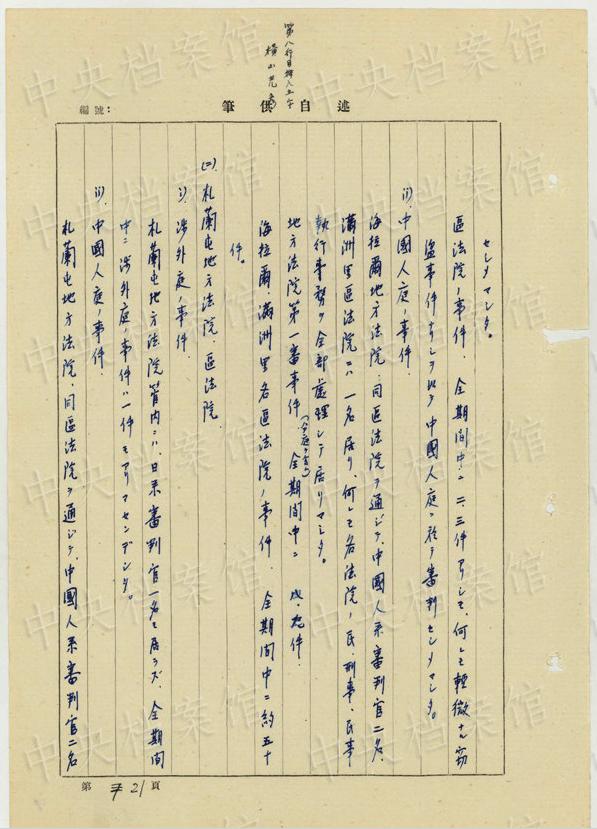 第八行目挿入五字
横山光彦
編號:
筆供自述
セシメマシタ。
區法院ノ事件、全期間中ニ二、三件アリシモ、何レモ輕微ナル窃
盗事件ナリシヲ以テ中國人庭ニ於テ審判セシメマシタ。
(ii)、中國人庭ノ事件、
海拉爾地方法院、同區法院ヲ通ジテ、中國人系審判官二名、
滿洲里區法院ニハ一名居リ、何レモ各法院ノ民、刑事、民事
執行事務ヲ全部處理シテ居リマシタ。
地方法院第一審事件 全期間中ニ 件。
海拉爾、滿洲里各區法院ノ事件、全期間中ニ約五十
件。
(二)、札蘭屯地方法院、區法院、
i)、涉外庭ノ事件、
札蘭屯地方法院管内ニハ、日系審判官一名モ居ラズ、全期間
中ニ涉外庭ノ事件ハ一件モアリマセンデシタ。
ii)、中國人庭ノ事件、
札蘭屯地方法院、同區法院ヲ通ジテ、中國人系審判官二名
第 21 頁
中央档案馆